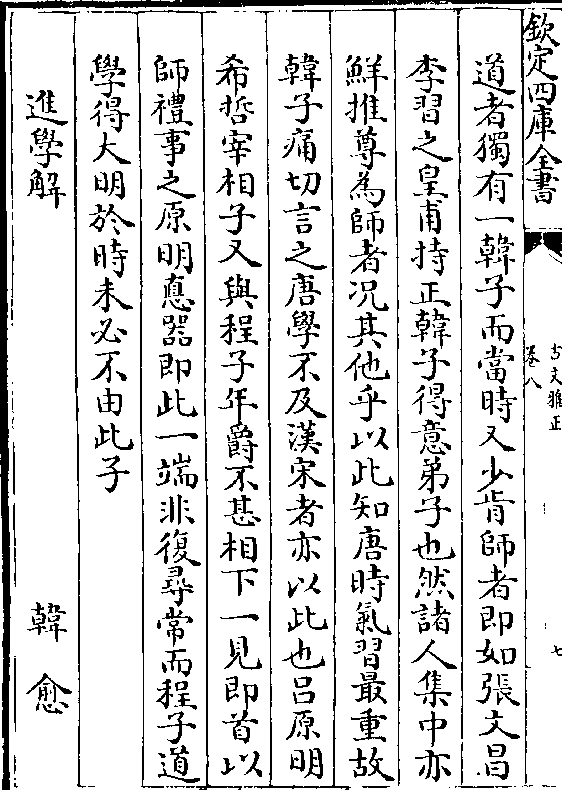 欽定四庫全書
古文雅正
卷八
七
道者獨有一韓子而當時又少肯師者即如張文昌
李習之皇甫持正韓子得意弟子也然諸人集中亦
鮮推尊為師者况其他乎以此知唐時氣習最重故
韓子痛切言之唐學不及漢宋者亦以此也吕原明
希哲宰相子又與程子年爵不甚相下一見即首以
師禮事之原明徳器即此一端非復尋常而程子道
學得大明於時未必不由此子
進學解 韓愈